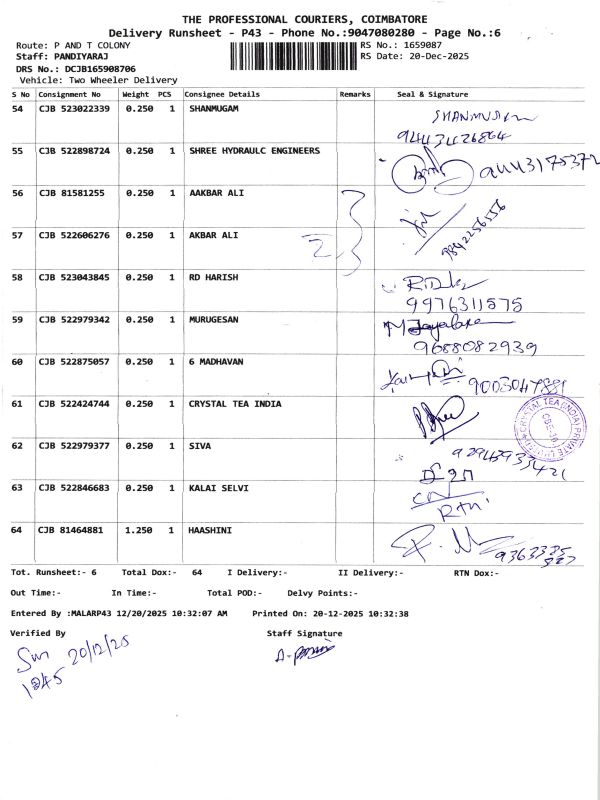 THE PROFESSIONAL COURIERS, COIMBATORE
Delivery Runsheet - P43 - Phone No.:9047080280 - Page No.:6
Route: P AND T COLONY
RS No.: 1659087
Staff: PANDIYARAJ
RS Date: 20-Dec-2025
DRS No.: DCJB165908706
Vehicle: Two Wheeler Delivery
S No Consignment No Weight PCS Consignee Details Remarks Seal & Signature
54 CJB 523022339 0.250 1 SHANMUGAM
9443426864
55 CJB 522898724 0.250 1 SHREE HYDRAULC ENGINEERS
9443175372
56 CJB 81581255 0.250 1 AAKBAR ALI
9842256556
57 CJB 522606276 0.250 1 AKBAR ALI
58 CJB 523043845 0.250 1 RD HARISH
9976311575
59 CJB 522979342 0.250 1 MURUGESAN
9688082939
60 CJB 522875057 0.250 1 6 MADHAVAN
9003047881
61 CJB 522424744 0.250 1 CRYSTAL TEA INDIA
CRYSTAL TEA (INDIA) PRIVATE
62 CJB 522979377 0.250 1 SIVA
63 CJB 522846683 0.250 1 KALAI SELVI
64 CJB 81464881 1.250 1 HAASHINI
Tot. Runsheet:- 6 Total Dox:- 64 I Delivery:- II Delivery:- RTN Dox:-
Out Time:- In Time:- Total POD:- Delvy Points:-
Entered By :MALARP43 12/20/2025 10:32:07 AM Printed On: 20-12-2025 10:32:38
Verified By Staff Signature
20/12/25